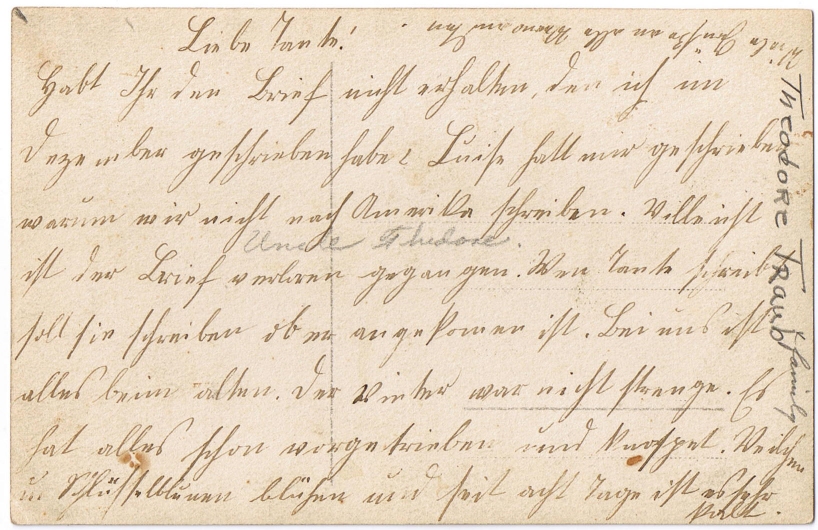 Liebe Tante!
Habt Ihr den Brief nicht erhalten, den ich im
Dezember geschrieben habe? Luise hatt mir geschrieben
warum wir nicht nach Amerika schreiben. Villeicht
ist der Brief verloren gegangen. Wen Tante schreibt
soll sie schreiben ob er angekomen ist. Bei uns ist
alles beim alten. Der Winter war nicht strenge. Es
hat alles schon vorgetrieben und knospet. Veilchen
u. Schlüsselblumen blühen und seit acht Tage ist es sehr
kalt.
Uncle Thedore
Theodore Traub family